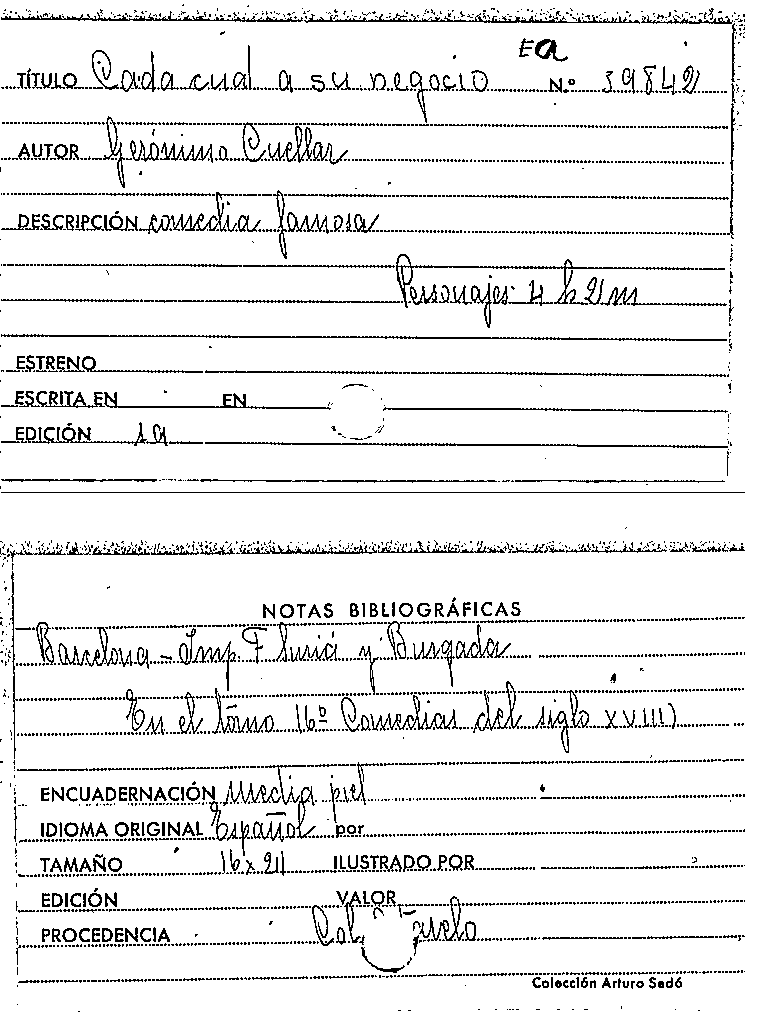 Ea
TÍTULO Cada cual a su negocio N.º 39842
AUTOR Gerónimo Cuellar
DESCRIPCIÓN comedia famosa
Personajes 4 h 2 m
ESTRENO
ESCRITA EN EN
EDICIÓN 1a
NOTAS BIBLIOGRÁFICAS
Barcelona - Imp. F Suriá y Burgada
En el tomo 16º Comedias del siglo XVIII)
ENCUADERNACIÓN Media piel
IDIOMA ORIGINAL Español por
TAMAÑO 16 x 21 ILUSTRADO POR
EDICIÓN VALOR
PROCEDENCIA Col
Colección Arturo Sedó